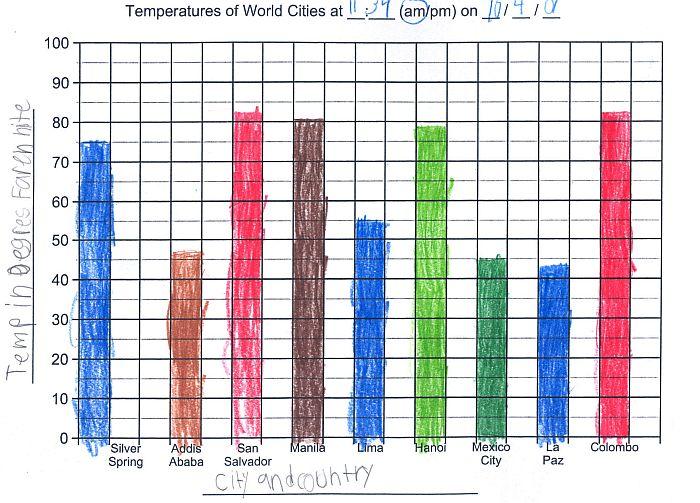 Temperatures of World Cities at 11:34 (am/pm) on 10/4/01
100
90
80
70
60
50
40
30
20
10
0
Temp in Degres Farenhite
Silver Spring
Addis Ababa
San Salvador
Manila
Lima
Hanoi
Mexico City
La Paz
Colombo
City and country